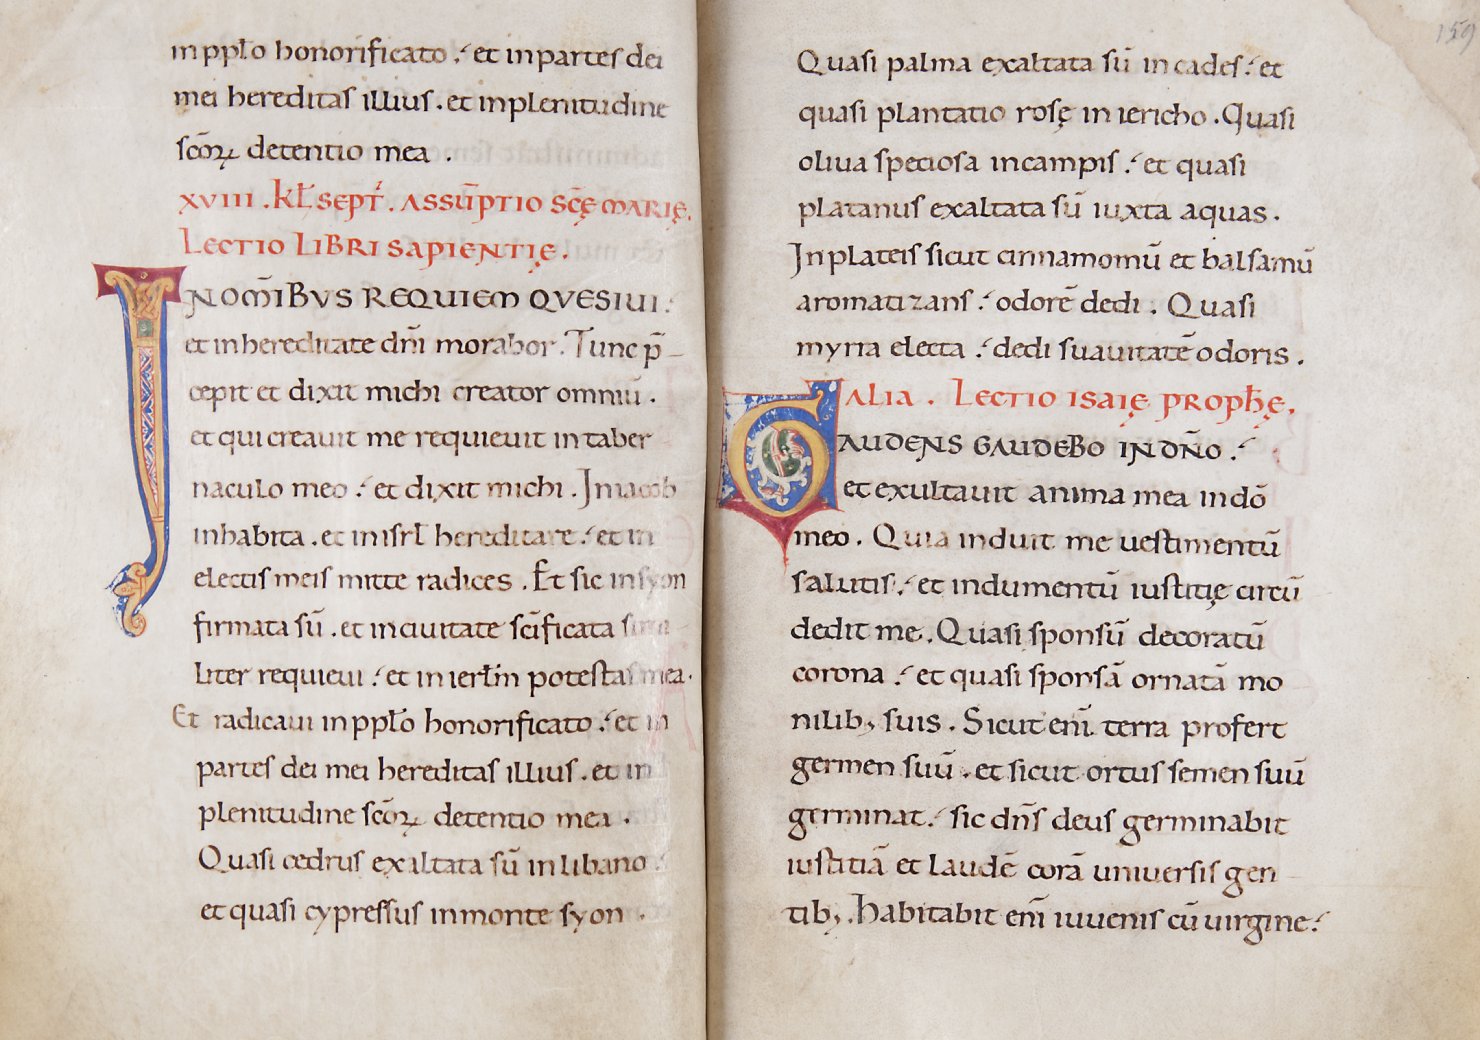 in ppło honorificato ; et in partes dei
mei hereditas illius . et in plenitudine
scōꝝ detentio mea .
XVIII . KL̄ SEPT̄ . ASSŪPTIO SC̄Ę MARIĘ.
LECTIO LIBRI SAPIENTIĘ .
IN OM̄IBVS REQUIEM QVESIVI ;
et in hereditate dn̄i morabor . Tunc p̄
cepit et dixit michi creator omniū .
et qui creauit me requieuit in taber
naculo meo ; et dixit michi . In iacob
inhabita . et in isrł hereditare ; et in
electis meis mitte radices . Et sic in syon
firmata sū . et in ciuitate sc̄ificata simi
liter requieui ; et in ierłm potestas mea .
Et radicaui in ppło honorificato ; et in
partes dei mei hereditas illius . et in
plenitudine scōꝝ detentio mea .
Quasi cedrus exaltata sū in libano ;
et quasi cypressus in monte syon .
159
Quasi palma exaltata sū in cades ; et
quasi plantatio rosę in iericho . Quasi
oliua speciosa in campis ; et quasi
platanus exaltata sū iuxta aquas .
In plateis sicut cinnamomū et balsamū
aromatizans ; odorē dedi . Quasi
myrra electa ; dedi suauitatē odoris .
ALIA . LECTIO ISAIĘ PROPHĘ.
GAUDENS GAUDEBO IN DN̄O ;
et exultauit anima mea in dō
meo . Quia induit me uestimentū
salutis ; et indumentū iustitię circū
dedit me . Quasi sponsū decoratū
corona ; et quasi sponsā ornatā mo
nilib; suis . Sicut eni̅ terra profert
germen suū . et sicut ortus semen suū
germinat ; sic dn̄s deus germinabit
iustitiā et laudē corā uniuersis gen
tib; . Habitabit eni̅ iuuenis cū uirgine ;